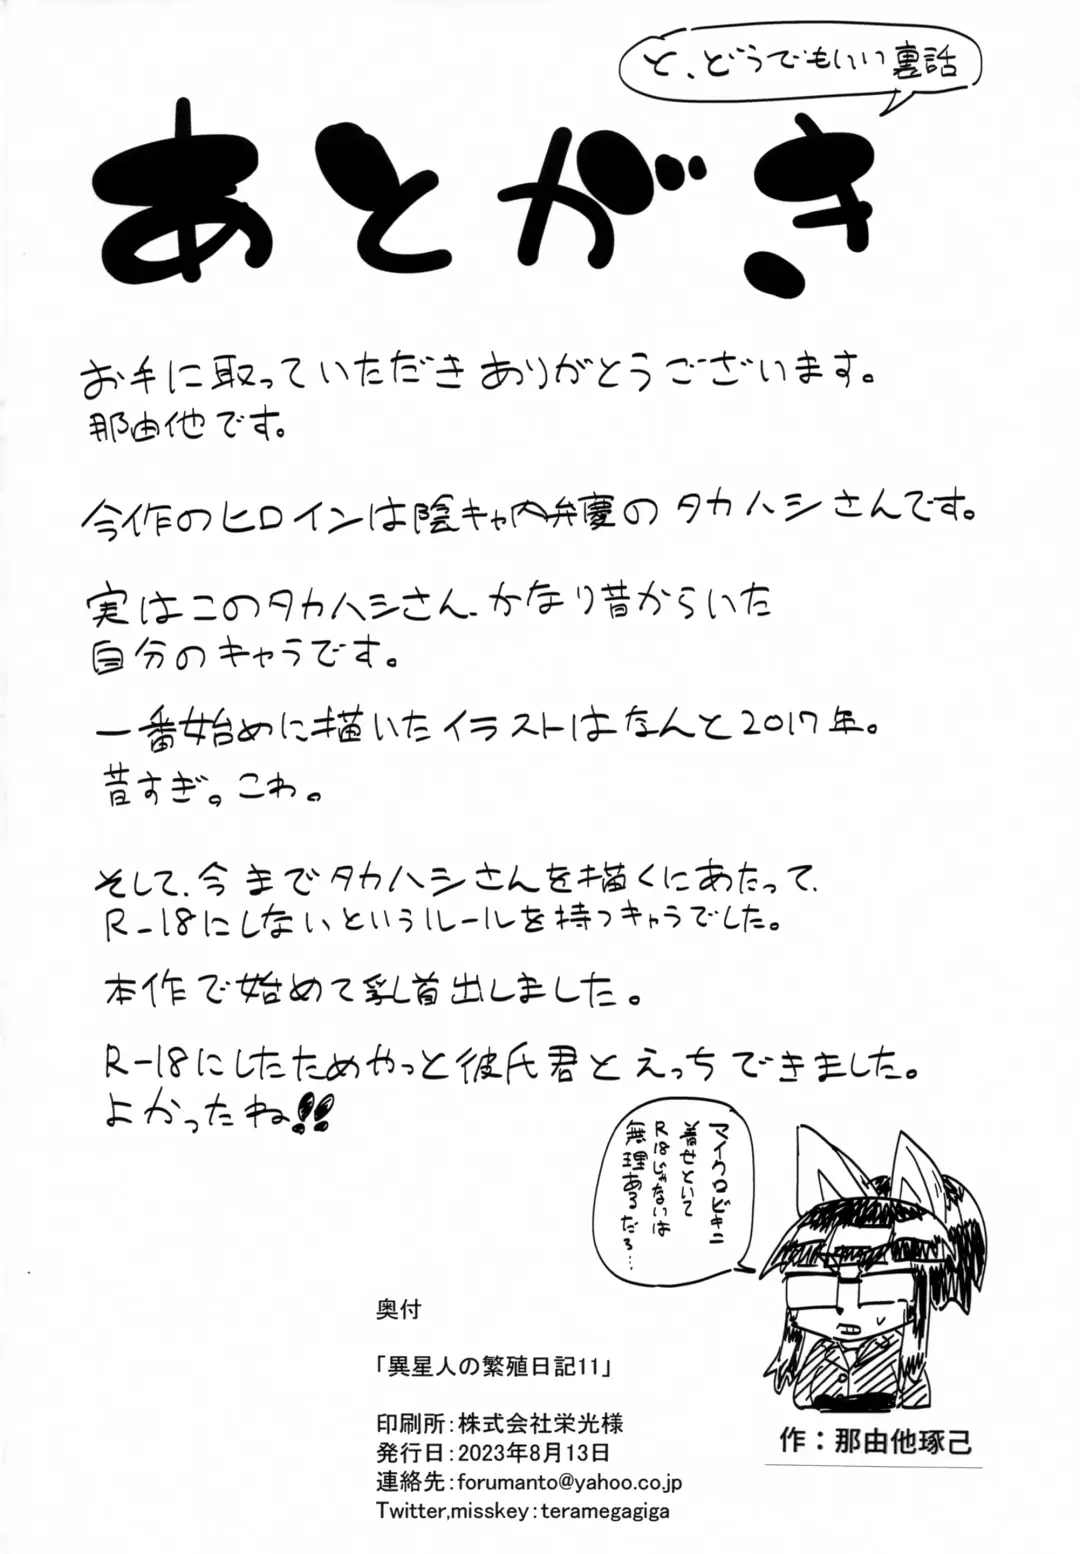 あとがき
と、どうでもいい裏話
お手に取っていただきありがとうございます。
那由他です。
今作のヒロインは陰キャ内弁慶のタカハシさんです。
実はこのタカハシさん、かなり昔からいた
自分のキャラです。
一番始めに描いたイラストはなんと2017年。
昔すぎ。こわ。
そして、今までタカハシさんを描くにあたって、
R-18にしないというルールを持つキャラでした。
本作で始めて乳首出しました。
R-18にしたためやっと彼氏君とえっちできました。
よかったね!!
マイクロビキニ
着せといて
R18じゃないは
無理あるだろ…
奥付
「異星人の繁殖日記11」
印刷所：株式会社栄光様
発行日：2023年8月13日
連絡先：forumanto@yahoo.co.jp
Twitter,misskey：teramegagiga
作：那由他琢己